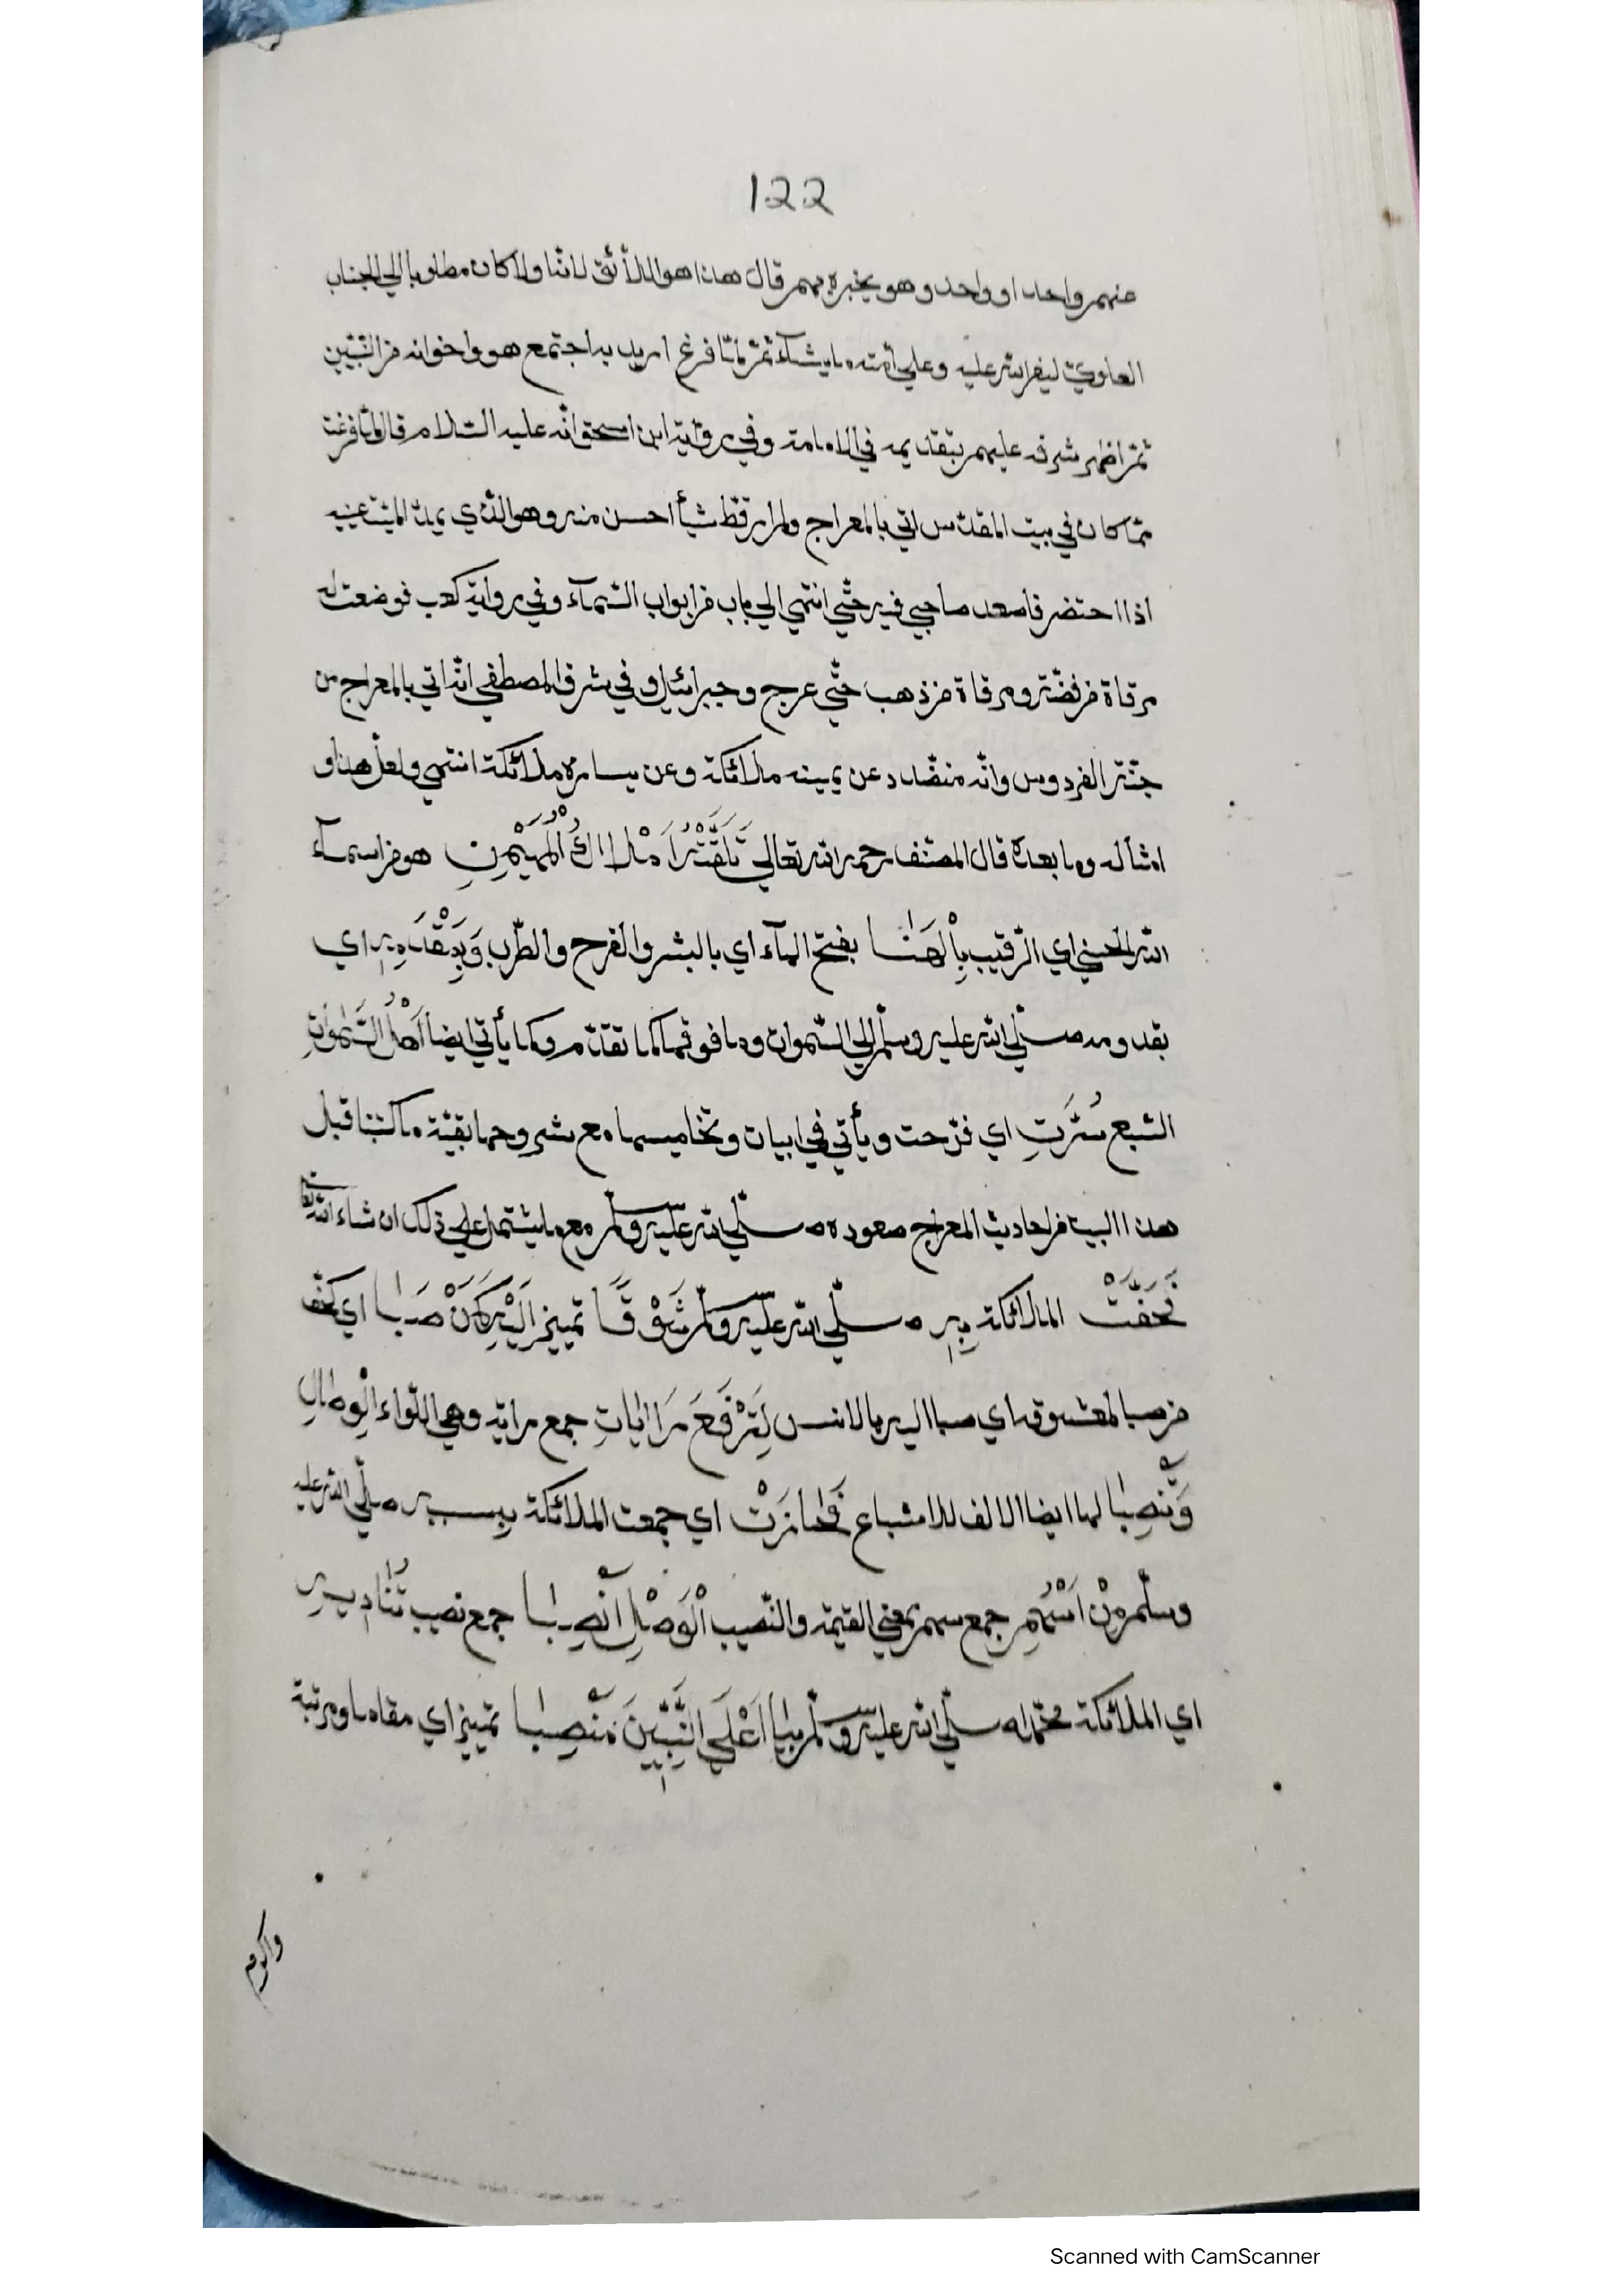 122
منهم واحد او واحد وهو يخبره بهم قال هذا هو اللأئق لانّنا ولا كان مطلوبا الي الجناب
العلويّ ليفرالله عليه وعلي امّته ما يشآء ثمّ لمّا فرغ اريد به اجتمع هو واخوانه من النّبيّين
ثمّ اظهر شرفه عليهم بتقديمه في الامامة وفي رواية ابن اسحق انّه عليه السّلام قال لمّا فرغت
ممّا كان في بيت المقدّس اتي بالمعراج ولم ار قطّ شيأ احسن منه وهو الّذي يمدّ الميّت عينيه
اذا احتضر فاصعد صاحبي فيه حتّي انتهي الي باب من ابواب السّمآء وفي رواية كعب فوضعت له
مرقاة من فضّة ومرقاة من ذهب حتّي عرج وجبرائيل وفي شرف المصطفي انّه اتي بالمعراج من
جنّة الفردوس وانّه منضّد عن يمينه ملائكة وعن يساره ملائكة انتهي ولعلّ هذا و
امثاله وما بعده قال المصنّف رحمه الله تعالي تَلَقَّتْهُ اَمْلَاكُ الْمُهَيْمِنِ هو من اسمآء
الله الحسني اي الرّقيب بِالْهَنَا بفتح الهآء اي بالبشر والفرح والطّرب وَبِمَقْدَمِهِ اي
بقدومه صلّي الله عليه وسلّم الي السّموات وما فوقها كما تقدّم وكما يأتي ايضا اَهْلُ السَّمٰوَاتِ
السّبع سُرَّتِ اي فرّحت ويأتي في ابيات وتخاميسها مع شروحها بقيّة ما كتبنا قبل
هذا البيت من احاديث المعراج صعوده صلّي الله عليه وسلّم مع ما يشتمل علي ذلك ان شاء الله تعا
تَحَفَّتْ الملائكة بِهِ صلّي الله عليه وسلّم شَوْقًا تمييز اِلَيْهِ كَمَنْ صَبَا اي كمن
من صبا لمعشوقه اي صبا اليه بالانس لِتَرْفَعَ رَايَاتِ جمع راية وهي اللّواء الْوِصَالِ
وَتَنْصِبَا لها ايضا الالف للاشباع فَحَازَتْ اي جمعت الملائكة بسببه صلّي الله عليه
وسلّم مِنْ اَسْهُمِ جمع سهم بمعني القيمة والنّصيب الْوَصْلِ اَنْصِبَا جمع نصيب تُنَادِيهِ
اي الملائكة محمّدا صلّي الله عليه وسلّم بيا اَعْلَي النَّبِيِّينَ مَنْصِبَا تمييز اي مقاما ومرتبة
واكرم
Scanned with CamScanner